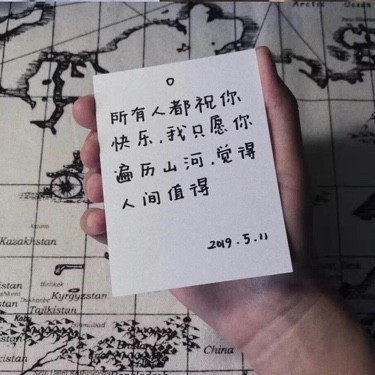 所有人都祝你
快乐,我只愿你
遍历山河,觉得
人间值得
2019.5.11
Arctic Ocean
Kazakhstan
Kyrgyzstan
Tajikistan
China